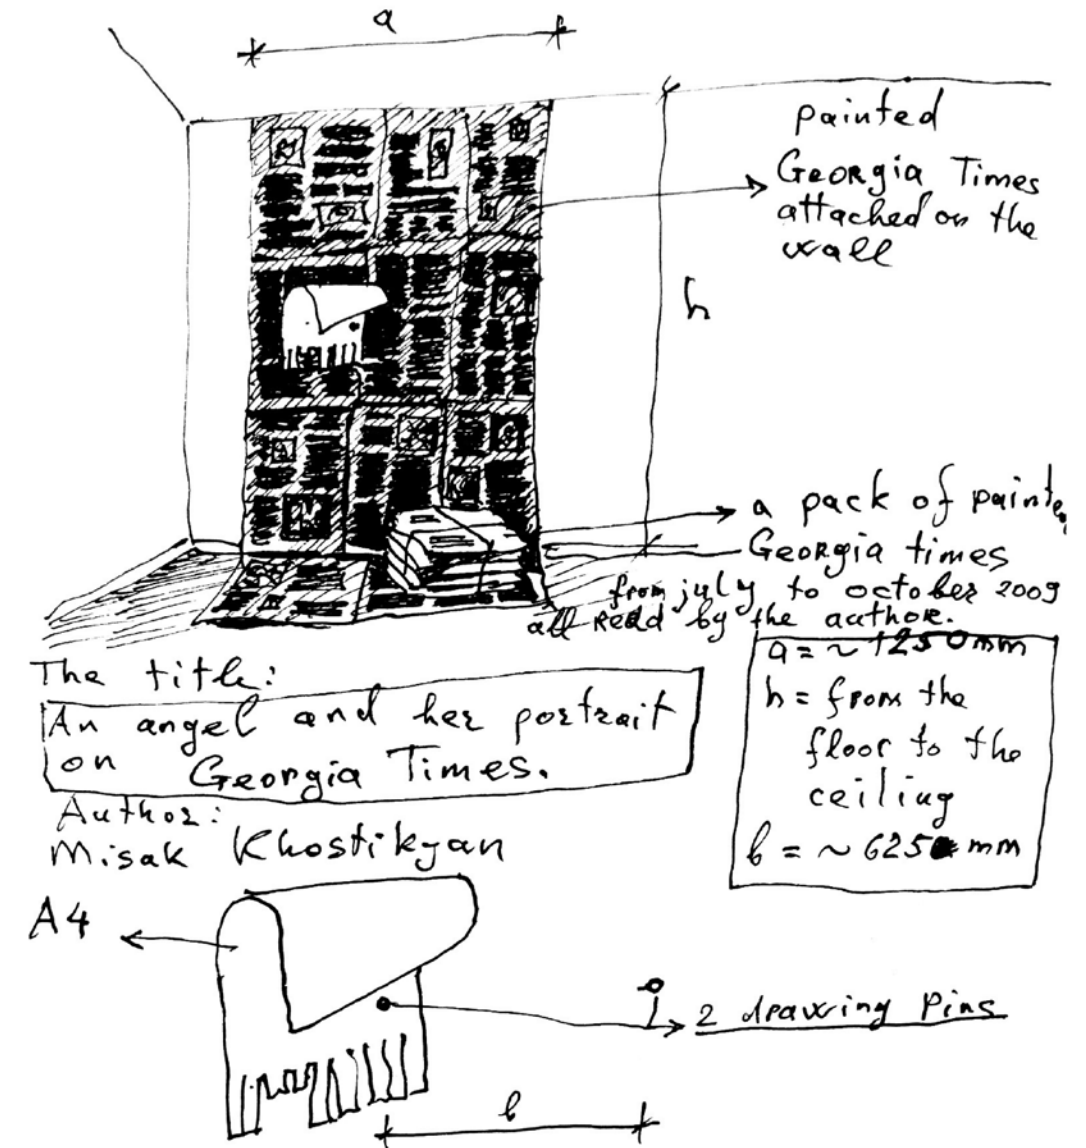 a
painted
Georgia Times
attached on the
wall
h
a pack of painted
Georgia times
from july to october 2009
all read by the author.
The title:
An angel and her portrait
on Georgia Times.
Author:
Misak Khostikyan
a = ~ 1250 mm
h = from the
floor to the
ceiling
b = ~ 625 mm
A4
2 drawing pins
b